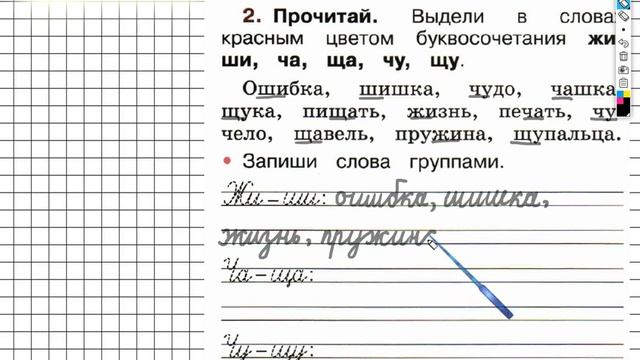 2. Прочитай. Выдели в слова
красным цветом буквосочетания жи
ши, ча, ща, чу, щу.
Ошибка, шишка, чудо, чашка
щука, пищать, жизнь, печать, чу
чело, щавель, пружина, щупальца.
• Запиши слова группами.
Жи – ши: ошибка, шишка,
жизнь, пружин
Ча – ща:
Чу – щу: